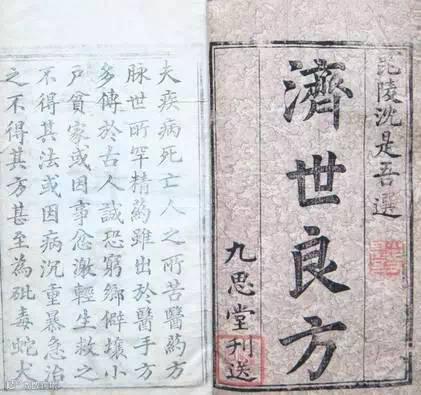 毘陵沈是吾選
濟世良方
九思堂刊送
夫疾病死亡人之所苦醫藥方
脉世所罕精藥雖出於醫手方
多傳於古人誠恐窮鄉僻壤小
戶貧家或因事忿激輕生救之
不得其法或因病沉重暴急治
之不得其方甚至為砒毒蛇犬